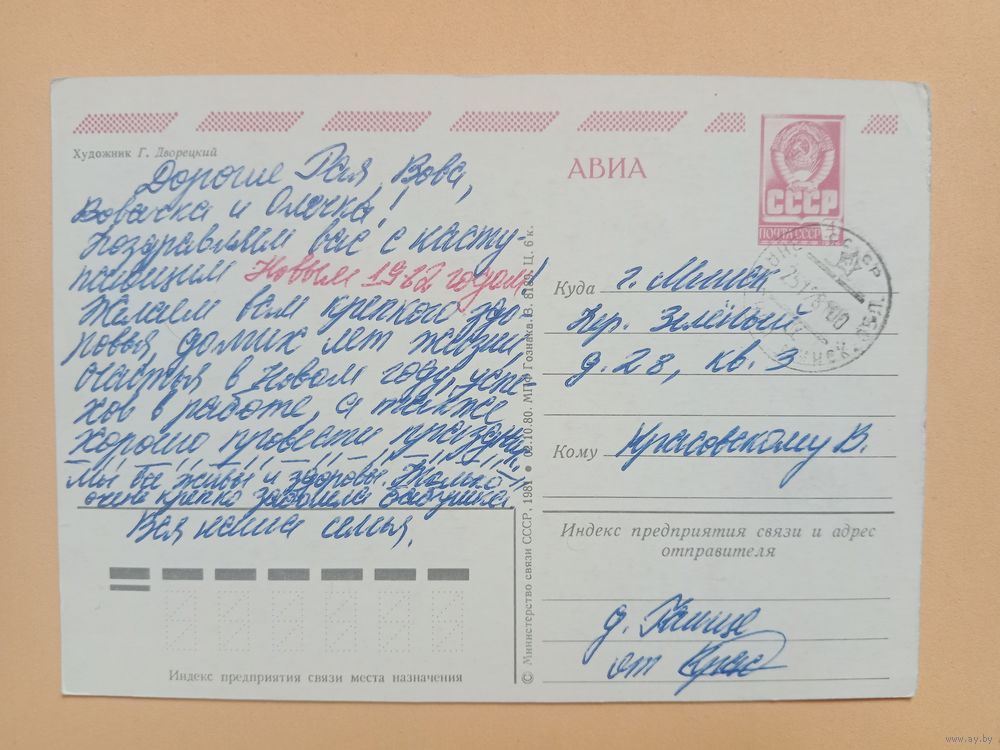 Художник Г. Дворецкий
Дорогие Рая, Вова,
Вовачка и Олечка!
Поздравляем вас с насту-
пающим Новым 1982 годом!
Желаем вам крепкого здо-
ровья, долгих лет жизни,
счастья в Новом году, успе-
хов в работе, а также
хорошо провести праздник.
Мы все живы и здоровы. Только
очень крепко заболела бабушка
Вся наша семья.
Индекс предприятия связи места назначения
© Министерство связи СССР, 1981 • 02.10.80. МПФ Гознака. З. 8189. Ц. 6 к.
АВИА
СССР
ПОЧТА СССР
Куда г. Минск
пер. Зелёный
д. 28, кв. 3
Кому Красовскому В.
Индекс предприятия связи и адрес
отправителя
д.
от Крас
www.ay.by